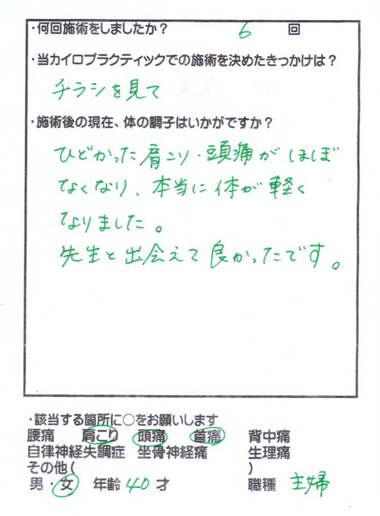 ・何回施術をしましたか？　6　回
・当カイロプラクティックでの施術を決めたきっかけは？
チラシを見て
・施術後の現在、体の調子はいかがですか？
ひどかった肩こり・頭痛がほぼ
なくなり、本当に体が軽く
なりました。
先生と出会えて良かったです。
・該当する箇所に○をお願いします
腰痛　肩こり　頭痛　首痛　背中痛
自律神経失調症　坐骨神経痛　生理痛
その他（　　　）
男・女　年齢 40 才　職種 主婦